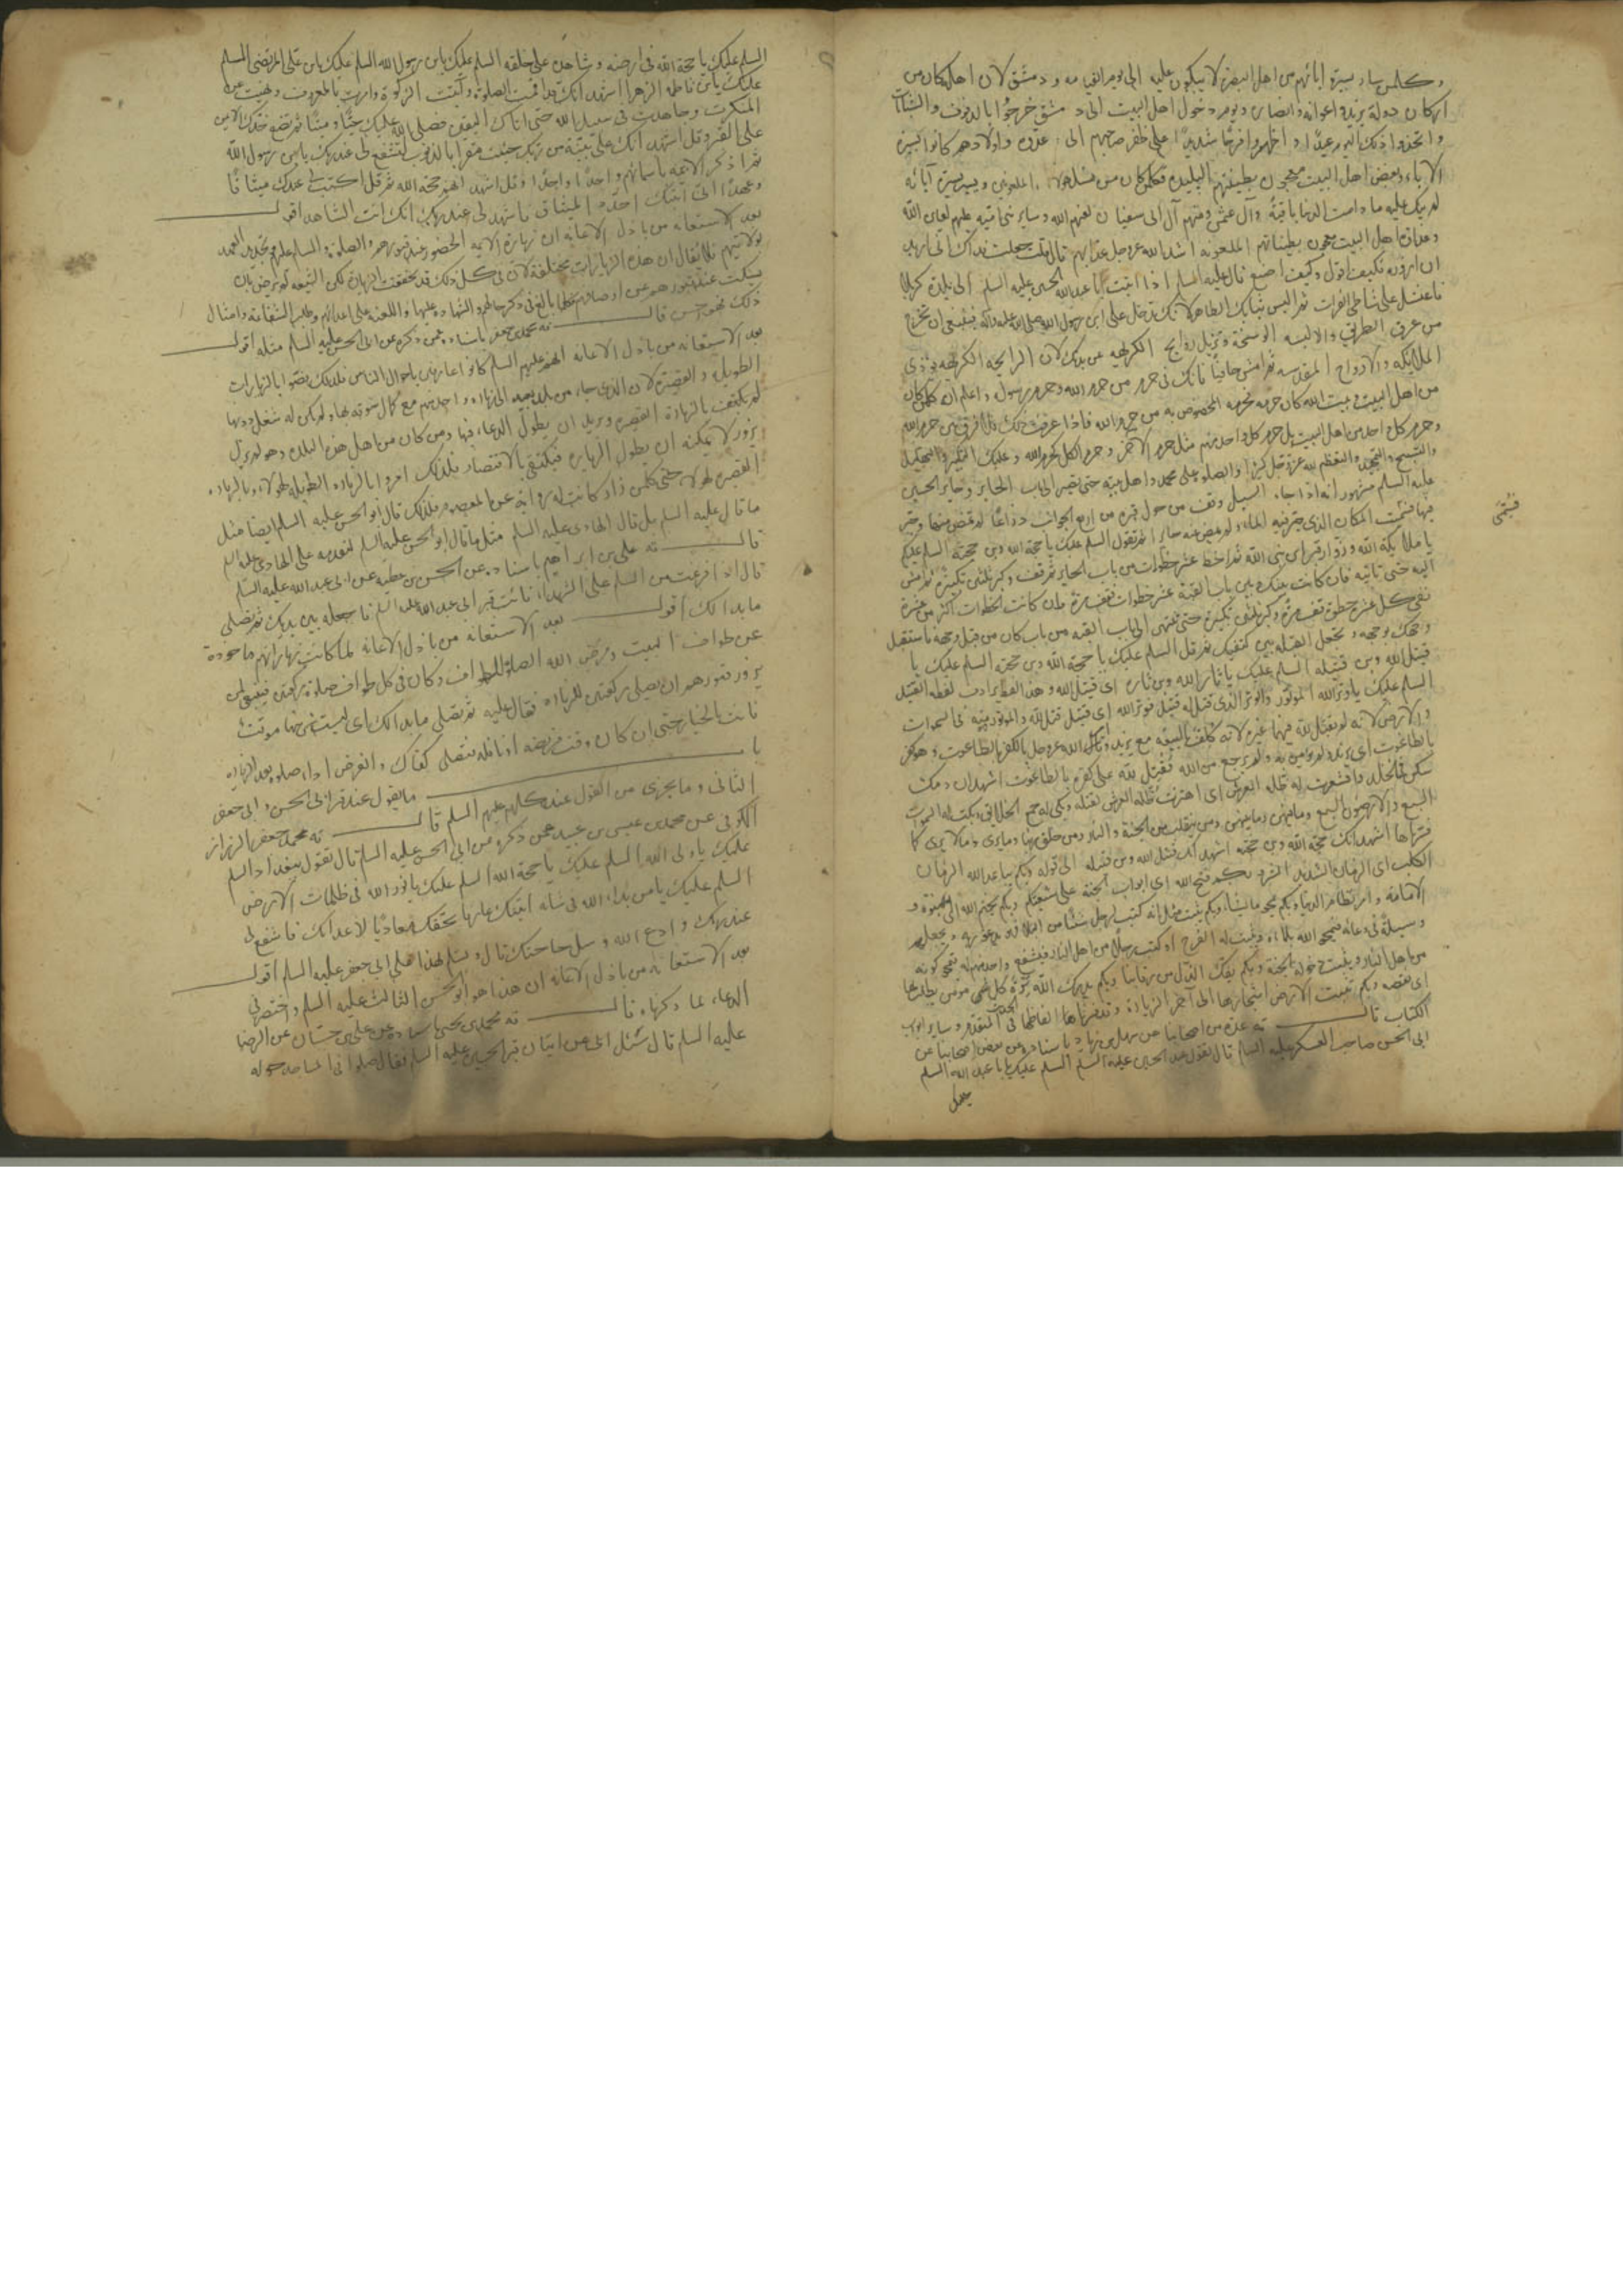 وكلمن ساد بسيرة ابائهم من اهل البصرة لا يبكون عليه الى يوم القيامه ودمشق لان اهلها كان من
اركان دولة يزيد واعوانه وانصاره ويوم دخول اهل البيت الى دمشق خرجوا بالدفوف والشبابات
واتخذوا ذلك اليوم عيدا واظهروا فرحا شديدا على ظفر صاحبهم الى عدوه واولادهم كانوا بسيرة
الاباء وبعض اهل البيت معجون بطينتهم البليده فكلمن كان من مثل هؤلاء الملعونين ويسير بسيرة آبائه
لم يبك عليه ما دامت الدنيا باقية وآل عثمن ومنهم آل ابى سفيان لعنهم الله وساير بنى اميه عليهم لعاين الله
وعداوة اهل البيت معجون بطيناتهم الملعونه اشد الله عز وجل عذابهم قال قلت جعلت فداك انى اريد
ان ازوره فكيف اقول وكيف اصنع قال عليه السلم اذا اتيت ابا عبد الله الحسين عليه السلم الى بلدة كربلا
فاغتسل على شاطئ الفرات ثم البس ثيابك الطاهره لانك تدخل على ابن رسول الله صلى الله عليه وآله فينبغى ان تخرج
من عرق الطريق والالبسه الوسخة وتزيل روايح الكريهه عن بدنك لان الرايحه الكريهه يوذى
الملائكه والارواح المقدسه ثم امش حافيا فانك فى حرم من حرم الله وحرم رسوله واعلم ان كلمن كان
من اهل البيت بيت الله كان حرمه بحرمه المخصوص به من حرم الله فاذا عرفت ذلك فلا فرق بين حرم الله
وحرم كل احد من اهل البيت بل حرم كل واحد منهم مثل حرم الاخر وحرم الكل بحرم الله وعليك بالتكبير والتهليل
والتسبيح والتمجيد والتعظيم لله عز وجل كثيرا والصلوة على محمد واهل بيته حتى تصير الى باب الحاير وحاير الحسين
عليه السلم مشهور انه اذا جاء السيل وقف من حول قبره من اربع الجوانب ذراعا لم يمض منها وحير
فيها فسميت المكان الذى حير فيه الماء ولم يمض عنه حايرا ثم تقول السلم عليك يا حجة الله وبن حجته السلم عليكم
يا ملائكة الله وزوار قبر ابن نبى الله ثم اخط عشر خطوات من باب الحاير ثم قف وكبر ثلثين تكبيرة ثم امش
اليه حتى تاتيه فان كانت بينك وبين باب القبة عشر خطوات تقف مرة وان كانت الخطوات اكثر من عشرة
ففى كل عشر خطوة تقف مرة وكبر ثلثين تكبيرة حتى تنتهى الى باب القبه من باب كان من قبل وجهه فاستقبل
وجهك بوجهه وتجعل القبله بين كتفيك ثم قل السلم عليك يا حجة الله وبن حجته السلم عليك يا
قتيل الله وبن قتيله السلم عليك يا ثار الله وبن ثاره اى قتيل الله وهذا لفظ يرادف لفظه القتيل
السلم عليك يا وتر الله الموتور والوتر الذى قتل له قتيل فوتر الله اى قتيل قتل لله والموتور فيه فى السموات
والارض لانه لم يقتل لله فيهما غيره لانه كلف بالبيعه مع يزيد وقال الله عز وجل بالكفر بالطاغوت وهو كفر
بالطاغوت اى يزيد ولم يومن به ولم يرجع من الله فقتل لله على كفره بالطاغوت اشهد ان دمك
سكن فى الخلد واقشعرت له اظله العرش اى اهتزت ظلة العرش لقتله وبكى له جميع الخلائق وبكت له السموات
السبع والارضون السبع وما فيهن وما بينهن ومن يتقلب فى الجنة والنار ومن خلق ربنا وما يرى وما لا يرى كما
قراها اشهد انك حجة الله وبن حجته اشهد انك قتيل الله وبن قتيله الى قوله وبكم يباعد الله الزمان
الكلب اى الزمان الشديد الشر وبكم فتح الله اى ابواب الجنة على شيعتكم وبكم يختم الله اى النبوة و
الامامه وامر نظام الدنيا وبكم يمحو ما يشاء وبكم يثبت مثل انه كتب لرجل شيئا من البلا فهو يدعو ربه ويجعلهم
وسيلة فى دعائه فيمحو الله بلاءه ويثبت له الفرج او كتب رجلا من اهل النار فيشفع واحد منهم له فيمحو كونه
من اهل النار ويثبت دخوله بالجنة وبكم يفك الذل من رقابنا وبكم يدرك الله ترة كل مومن يطلب بها
اى نقصه وبكم تنبت الارض اشجارها الى آخر الزيارة وقد فسرناها الفاظها فى الحديث المتقدم وساير ابواب
الكتاب قال ته عدة من اصحابنا عن سهل بن زياد باسناده عن بعض اصحابنا عن
ابى الحسن صاحب العسكر عليه السلم قال تقول عند الحسين عليه السلم السلم عليك يا ابا عبد الله السلم
عليك
فسمى
السلم عليك يا حجة الله فى ارضه وشاهده على خلقه السلم عليك يابن رسول الله السلم عليك يابن على المرتضى السلم
عليك يابن فاطمه الزهرا اشهد انك قد اقمت الصلوة وآتيت الزكوة وامرت بالمعروف ونهيت عن
المنكر وجاهدت فى سبيل الله حتى اتاك اليقين فصلى الله عليك حيا وميتا ثم تضع خدك الايمن
على القبر وقل اشهد انك على بينة من ربك جئت مقرا بالذنوب لتشفع لى عند ربك يابن رسول الله
ثم اذكر الائمه باسمائهم واحدا واحدا وقل اشهد انهم حجة الله ثم قل اكتب لى عندك ميثاقا
وعهدا انى اتيتك اجدد الميثاق فاشهد لى عند ربك انك انت الشاهد اقول
بعد الاستعانه من باذل الاعانه ان زيارة الائمه الحضور عند قبورهم والصلوة والسلم عليهم وتجديد العهد
بولايتهم فلا يقال ان هذه الزيارات مختلفة لان فى كل ذلك قد تحققت الزيارة لكن الشيعه لم يرض بان
يسكت عند قبورهم عن اوصافهم فكلما بالغ فى ذكر حالهم والشهاده عليها واللعنه على اعدائهم وطلب الشفاعه وامثال
ذلك فهو حسن قال ته محمد بن جعفر باسناده عمن ذكره عن ابى الحسن عليه السلم مثله اقول
بعد الاستعانه من باذل الاعانه انهم عليهم السلم كانوا عارفين باحوال الناس فلذلك نصوا بالزيارات
الطويلة والقصيرة لان الذى جاء من بلد بعيد الى زيارة واحد منهم مع كمال شوقه بها ولم يكن له شغل دونها
لم يكتف بالزيارة القصيره ويريد ان يطول الدعاء فيها ومن كان من اهل هذه البلده وهو لم يزل
يزور لا يمكنه ان يطول الزياره فيكتفى بالاقتصار فلذلك امروا بالزياره الطويله لهؤلاء وبالزياره
القصيره لهؤلاء حتى كلمن زار كانت له رواية عن المعصوم فلذلك قال ابو الحسن عليه السلم ايضا مثل
ما قال عليه السلم بل قال الهادى عليه السلم مثل ما قال ابو الحسن عليه السلم لتقدمه على الهادى عليه السلم
قال ته على بن ابراهيم باسناده عن الحسين بن عطيه عن ابى عبد الله عليه السلم
قال اذا فرغت من السلم على الشهداء فائت قبر ابى عبد الله عليه السلم فاجعله بين يديك ثم تصلى
ما بدا لك اقول بعد الاستعانه من باذل الاعانه لما كانت زياراتهم ماخوذة
عن طواف البيت وفرض الله الصلوة للطواف وكان فى كل طواف صلوة ركعتين فينبغى لمن
يزور قبورهم ان يصلى ركعتين للزيارة فقال عليه ثم تصلى ما بدا لك اى ليست فرضها موقتة
فانت بالخيار حتى ان كان وقت فريضه او نافله فتصلى كفاك والغرض اداء صلوة بعد الزياره
باب ما يقول عند قبر ابى الحسن وابى جعفر
الثانى وما يجزى من القول عند كلهم عليهم السلم قال ته محمد بن جعفر الرزاز
الكوفى عن محمد بن عيسى بن عبيد عمن ذكره عن ابى الحسن عليه السلم قال تقول ببغداد السلم
عليك يا ولى الله السلم عليك يا حجة الله السلم عليك يا نور الله فى ظلمات الارض
السلم عليك يا من بدا لله فى شانه اتيتك عارفا بحقك معاديا لاعدائك فاشفع لى
عند ربك وادع الله وسل حاجتك قال وتسلم بهذا على ابى جعفر عليه السلم اقول
بعد الاستعانه من باذل الاعانه ان هذا هو ابو الحسن الثالث عليه السلم واختصر فى
الدعاء لما ذكرناه قال ته محمد بن يحيى باسناده عن على بن حسان عن الرضا
عليه السلم قال سئل ابى عن اتيان قبر الحسين عليه السلم فقال صلوا فى المساجد حوله